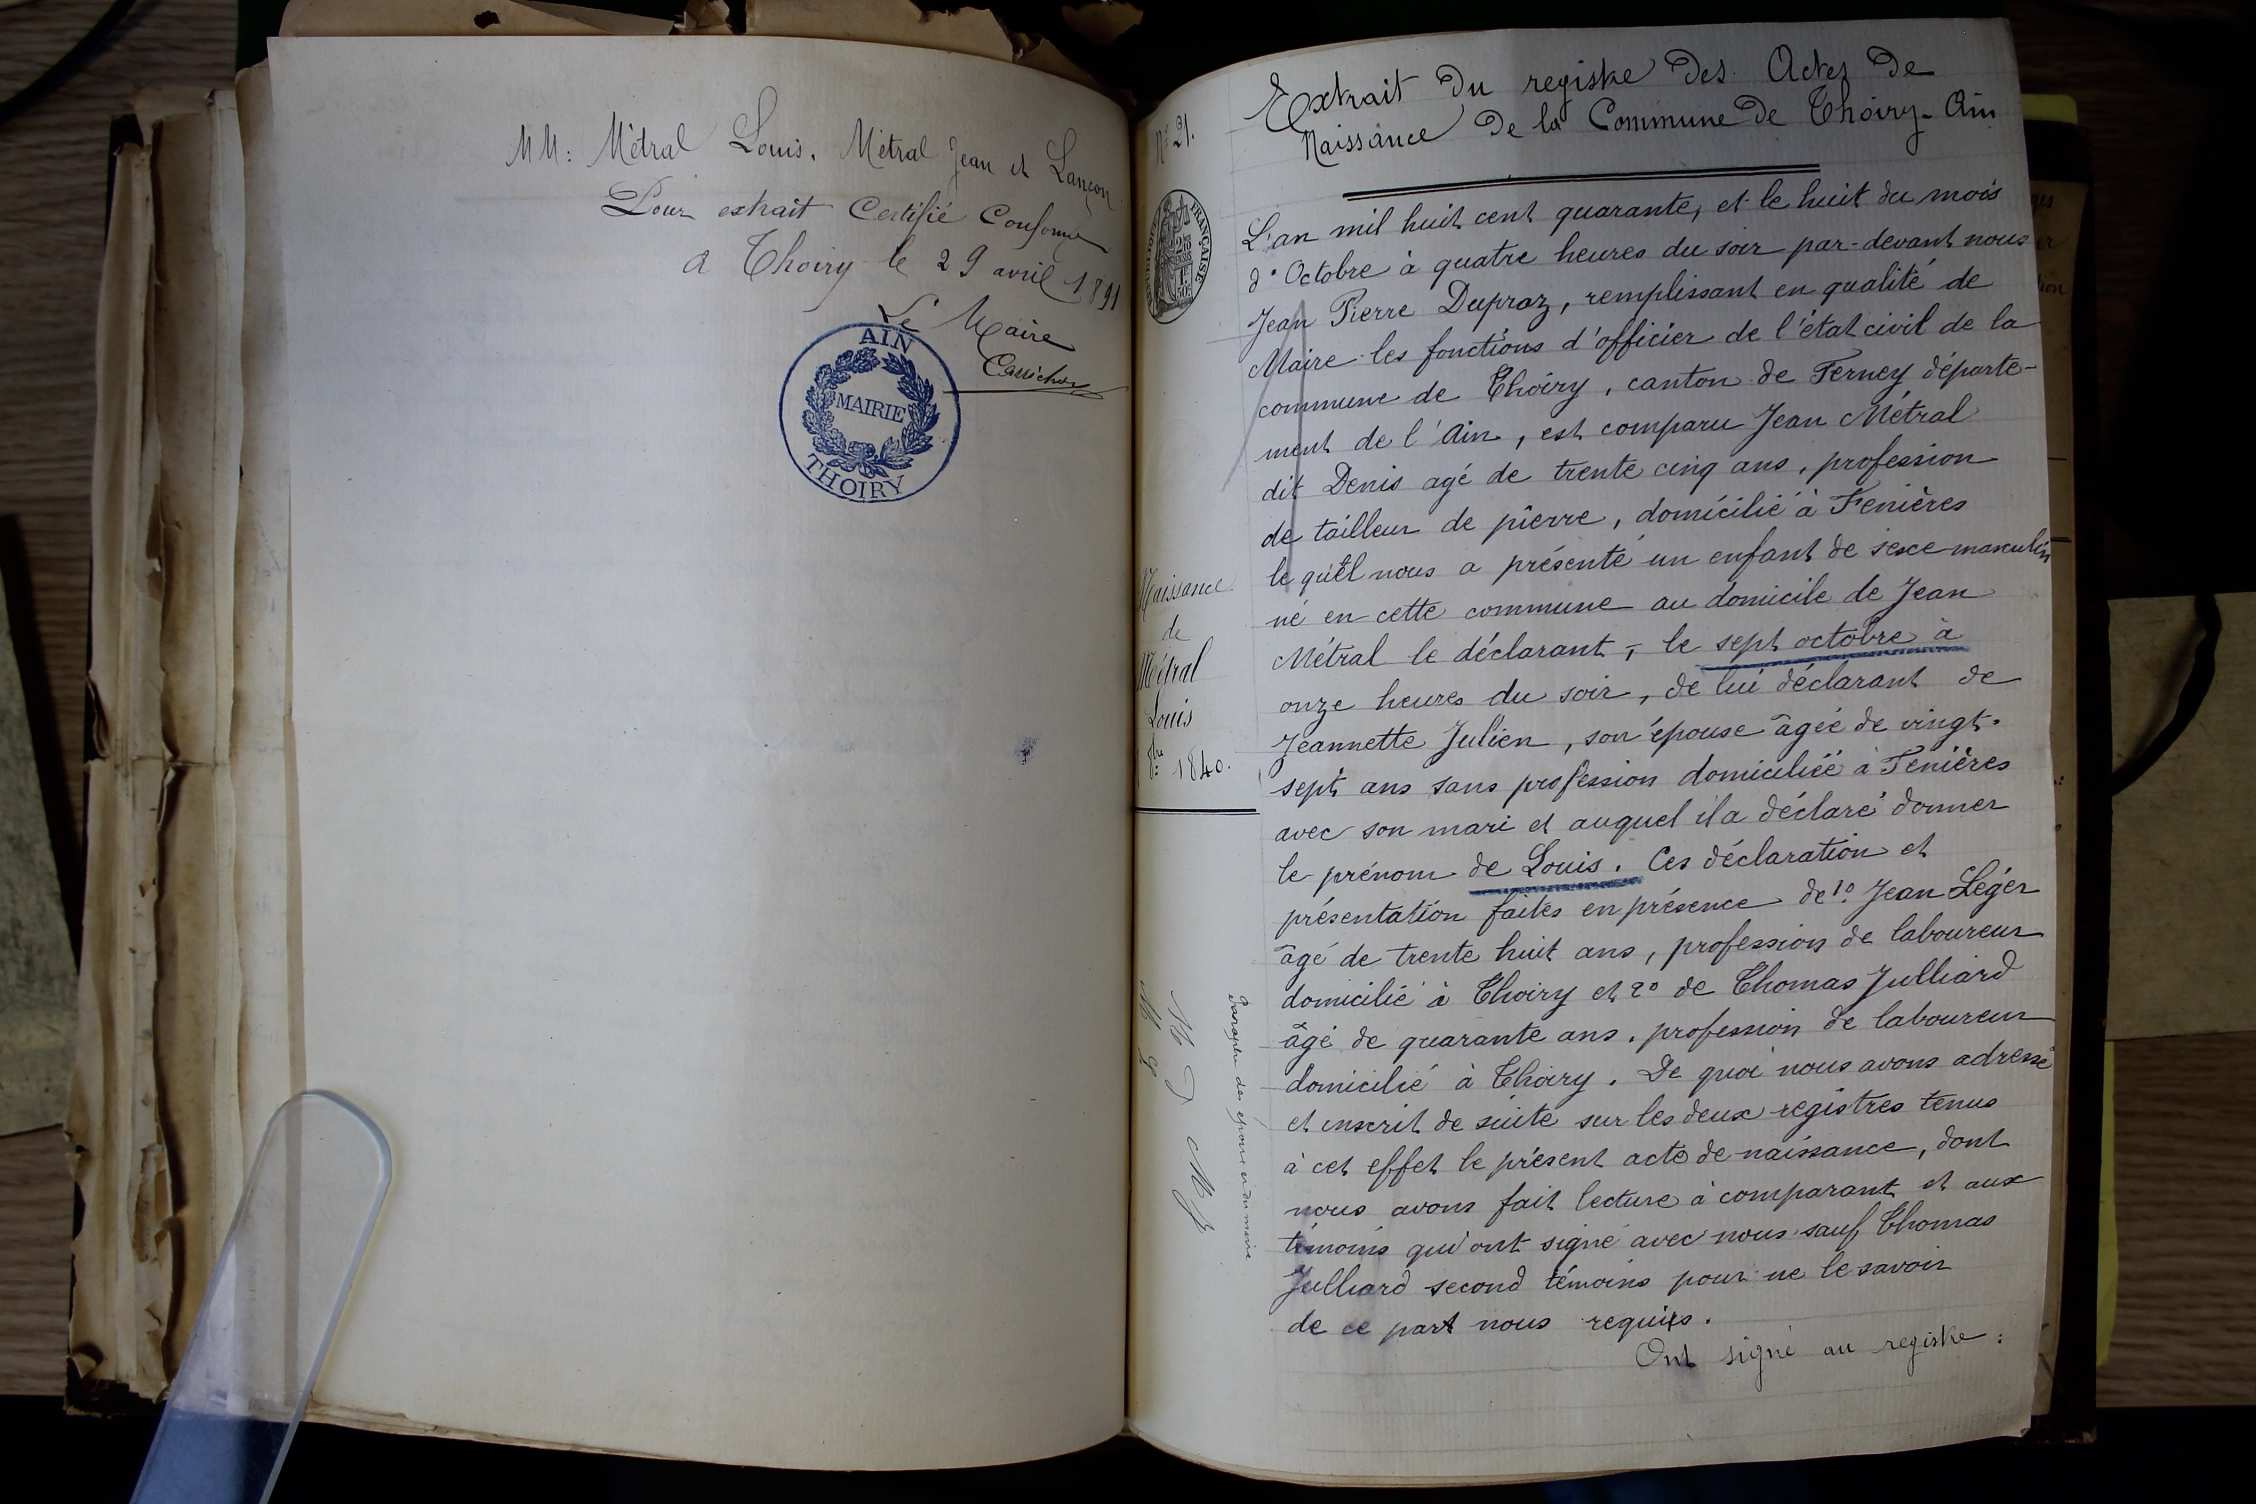 MM: Métral Louis. Métral Jean et Lançon
Pour extrait Certifié Conforme
a Thoiry le 29 avril 1891
Le Maire
AIN
MAIRIE
THOIRY
Extrait du registre des Actes de
Naissance de la Commune de Thoiry - Ain
FRANÇAISE
L'an mil huit cent quarante, et le huit du mois
d'Octobre à quatre heures du soir par-devant nous
Jean Pierre Dupraz, remplissant en qualité de
Maire les fonctions d'officier de l'état civil de la
commune de Thoiry, canton de Ferney départe-
ment de l'Ain, est comparu Jean Métral
dit Denis agé de trente cinq ans, profession
de tailleur de pierre, domicilié à Fenières
le quel nous a présenté un enfant de sexe masculin
né en cette commune au domicile de Jean
Métral le déclarant, le sept octobre à
onze heures du soir, de lui déclarant de
Jeannette Julien, son épouse âgée de vingt-
sept ans sans profession domiciliée à Fenières
avec son mari et auquel il a déclaré donner
le prénom de Louis. Ces déclaration et
présentation faites en présence de 1º. Jean Léger
âgé de trente huit ans, profession de laboureur
domicilié à Thoiry et 2º de Thomas Julliard
âgé de quarante ans. profession de laboureur
domicilié à Thoiry. De quoi nous avons adressé
et inscrit de suite sur les deux registres tenus
à cet effet le présent acte de naissance, dont
nous avons fait lecture à comparant et aux
témoins qui ont signé avec nous sauf Thomas
Julliard second témoins pour ne le savoir
de ce part nous requis.
Ont signé au registre:
Naissance
de
Métral
Louis
8bre 1840.
Paraphe des époux et du maire